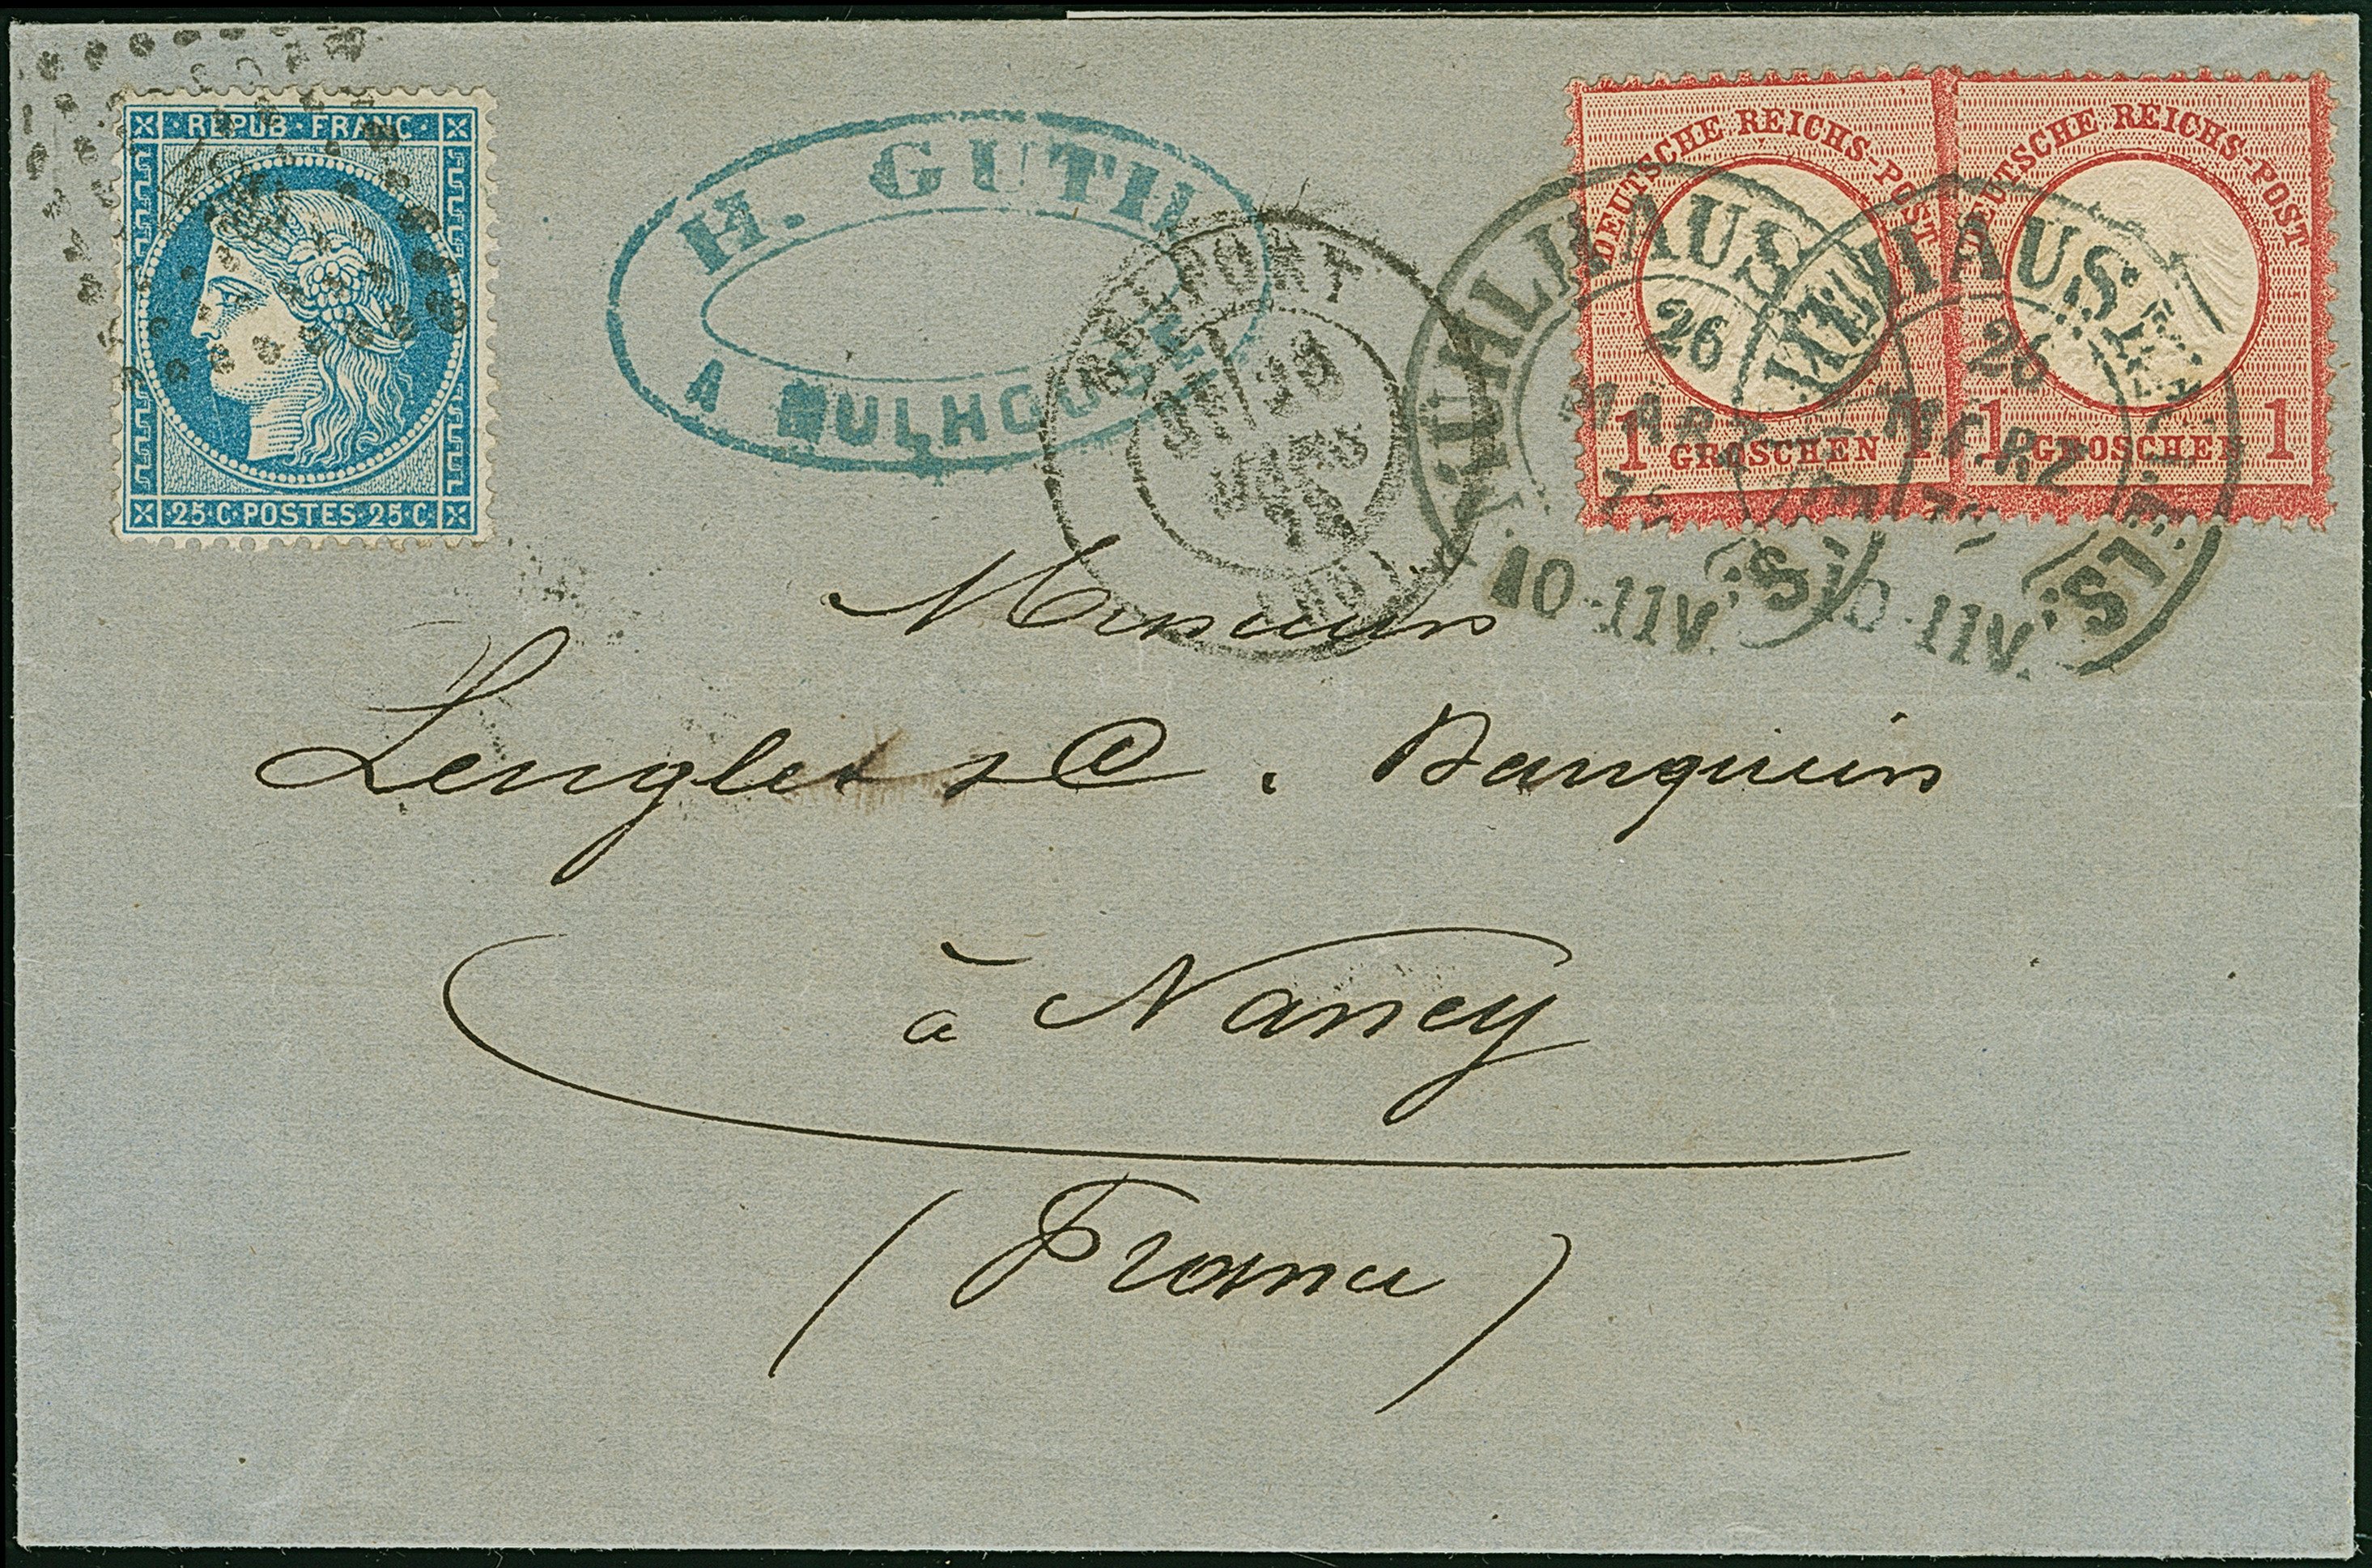 REPUB·FRANC·
25·C·POSTES·25·C
H. GUTH
A MULHOUSE
DEUTSCHE REICHS-POST
1 GROSCHEN 1
DEUTSCHE REICHS-POST
1 GROSCHEN 1
MÜLHAUSEN
26
MÄRZ
10-11V.
MÜLHAUSEN
26
MÄRZ
10-11V.
BELFORT
MARS
Messieurs
Lenglet & Cie. Banquiers
à Nancy
(France)